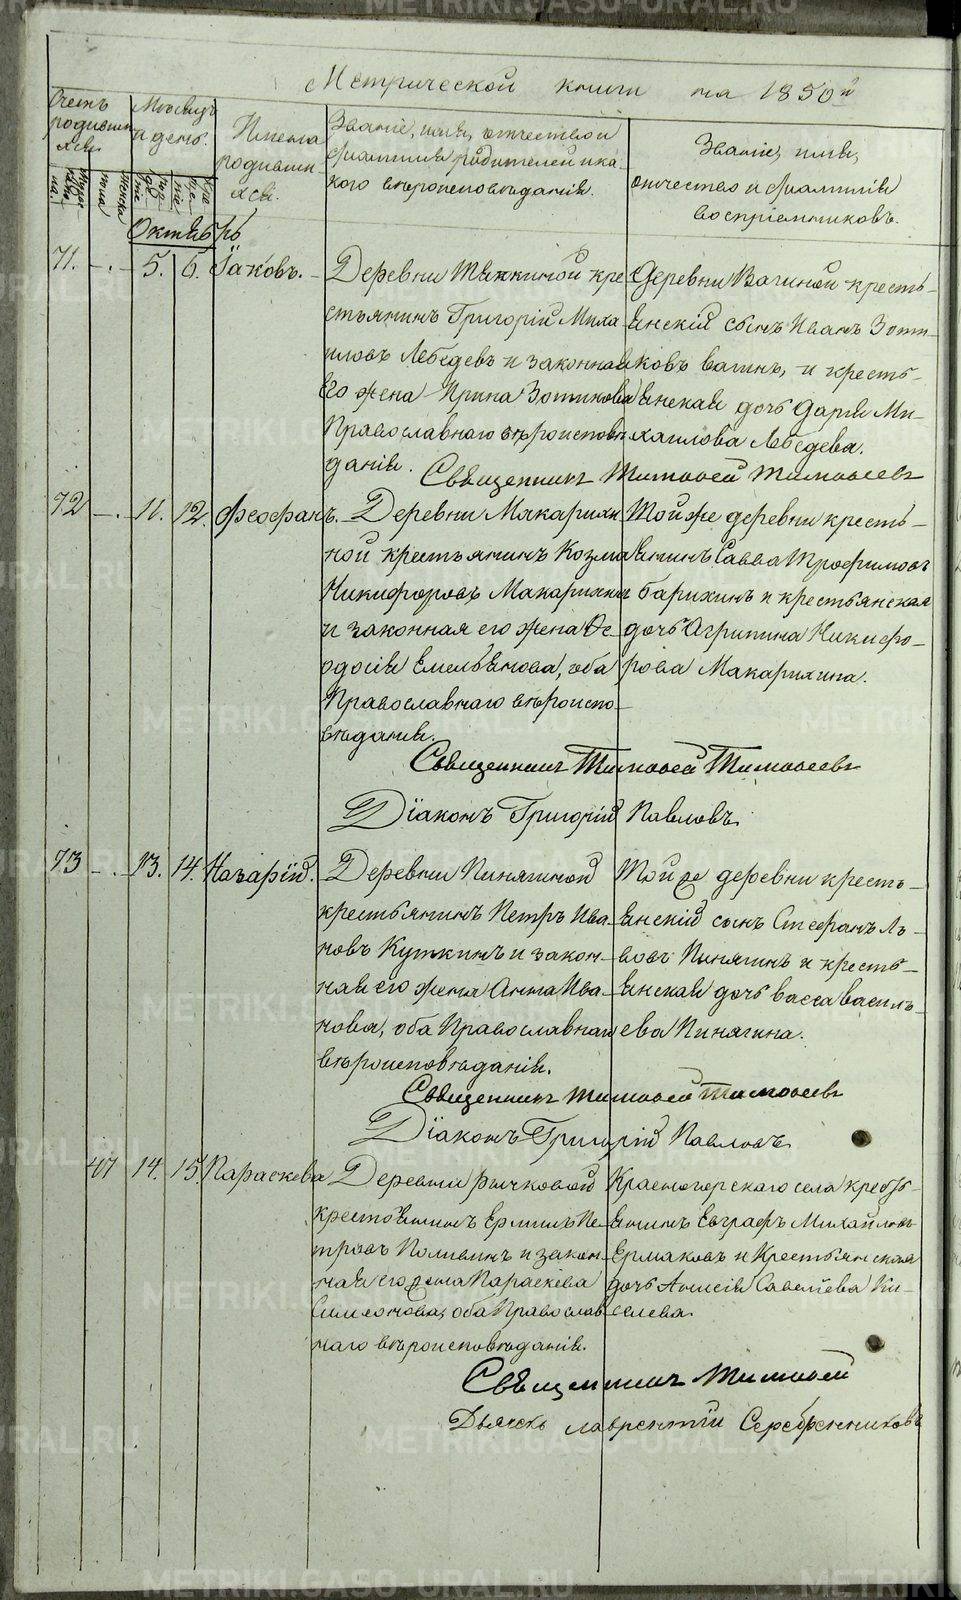 METRIKI.GASO-URAL.RU
Метрической книги на 1850й
Счетъ родившихся.
Мѣсяцъ и день.
Имена родившихся.
Званіе, имя, отчество и фамилія родителей и какого вѣроисповѣданія.
Званіе, имя, отчество и фамилія воспріемниковъ.
Октябрь
71. 5. 6. Іаковъ.
Деревни крестьянинъ Григорій Михаиловъ Лебедевъ и законная его жена Ирина Зотикова Православнаго вѣроисповѣданія.
Деревни Вагиной крестьянскій сынъ Иванъ Зотиковъ вагинъ, и крестьянская дочь Дарья Михаилова Лебедева.
Священникъ Тимоѳей Тимоѳеевъ
72 11. 12. Феофанъ.
Деревни Макарихиной крестьянинъ Козма Никифоровъ Макарихинъ и законная его жена Ѳеодосія Емельянова, оба Православнаго вѣроисповѣданія.
Той же деревни крестьянинъ Савва Трофимовъ барихинъ и крестьянская дочь Агрипина Никифорова Макарихина.
Священникъ Тимоѳей Тимоѳеевъ
Діаконъ Григорій Павловъ.
73 13. 14. Назарій.
Деревни Пинягиной крестьянинъ Петръ Ивановъ Куткинъ и законная его жена Анна Иванова, оба Православнаго вѣроисповѣданія.
Той же деревни крестьянскій сынъ Стефанъ Львовъ Пинягинъ и крестьянская дочь васса васильева Пинягина.
Священникъ Тимоѳей Тимоѳеевъ
Діаконъ Григорій Павловъ.
47 14. 15. Параскева
Деревни рычковой крестьянинъ Ермилъ Петровъ и законная его жена Параскева Симеонова, оба Православнаго вѣроисповѣданія.
Красногорскаго села крестьянинъ Евграфъ Михайловъ Ермаковъ и Крестьянская дочь Анисія Савелева Киселева.
Священникъ Тимоѳей
Дьячекъ лаврентій Серебренниковъ